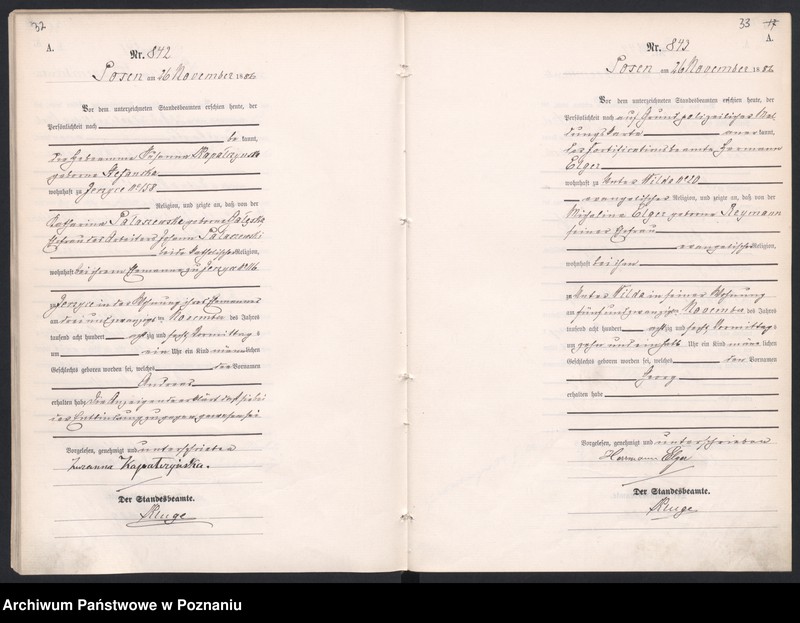 32
A.
Nr. 842
Posen am 26 November 1886
Vor dem unterzeichneten Standesbeamten erschien heute, der
Persönlichkeit nach
be kannt,
die Hebeamme Susanna Kapalczynska
geborne Stefanska
wohnhaft zu Jerzyce No 158
Religion, und zeigte an, daß von der
Katharina Palaszewska geborne
Ehefrau des Arbeiters Johann Palaszewski
beide katholischer Religion,
wohnhaft bei ihrem Ehemanne zu Jerzyce No 116
zu Jerzyce in der Wohnung ihres Ehemannes
am drei und zwanzigsten November des Jahres
tausend acht hundert achtzig und sechs Vormittags
um ein Uhr ein Kind männlichen
Geschlechts geboren worden sei, welches den Vornamen
Andreas
erhalten habe. Die Anzeigende erklärt daß sie bei
der Entbindung zugegen gewesen sei
Vorgelesen, genehmigt und unterschrieben
Zuzanna Kapalczyńska.
Der Standesbeamte.
Kluge
33
A.
Nr. 843
Posen am 26 November 1886
Vor dem unterzeichneten Standesbeamten erschien heute, der
Persönlichkeit nach auf Grund polizeilicher Mel
dungskarte anerkannt,
der Fortificationsbeamte Hermann
Elger
wohnhaft zu Unter Wilda No 20
evangelischer Religion, und zeigte an, daß von der
Michalina Elger geborne Reymann
seiner Ehefrau
evangelischer Religion,
wohnhaft bei ihm
zu Unter Wilda in seiner Wohnung
am fünf und zwanzigsten November des Jahres
tausend acht hundert achtzig und sechs Vormittags
um zehn und einhalb Uhr ein Kind männlichen
Geschlechts geboren worden sei, welches den Vornamen
Georg
erhalten habe
Vorgelesen, genehmigt und unterschrieben
Herrmann Elger
Der Standesbeamte.
Kluge
Archiwum Państwowe w Poznaniu